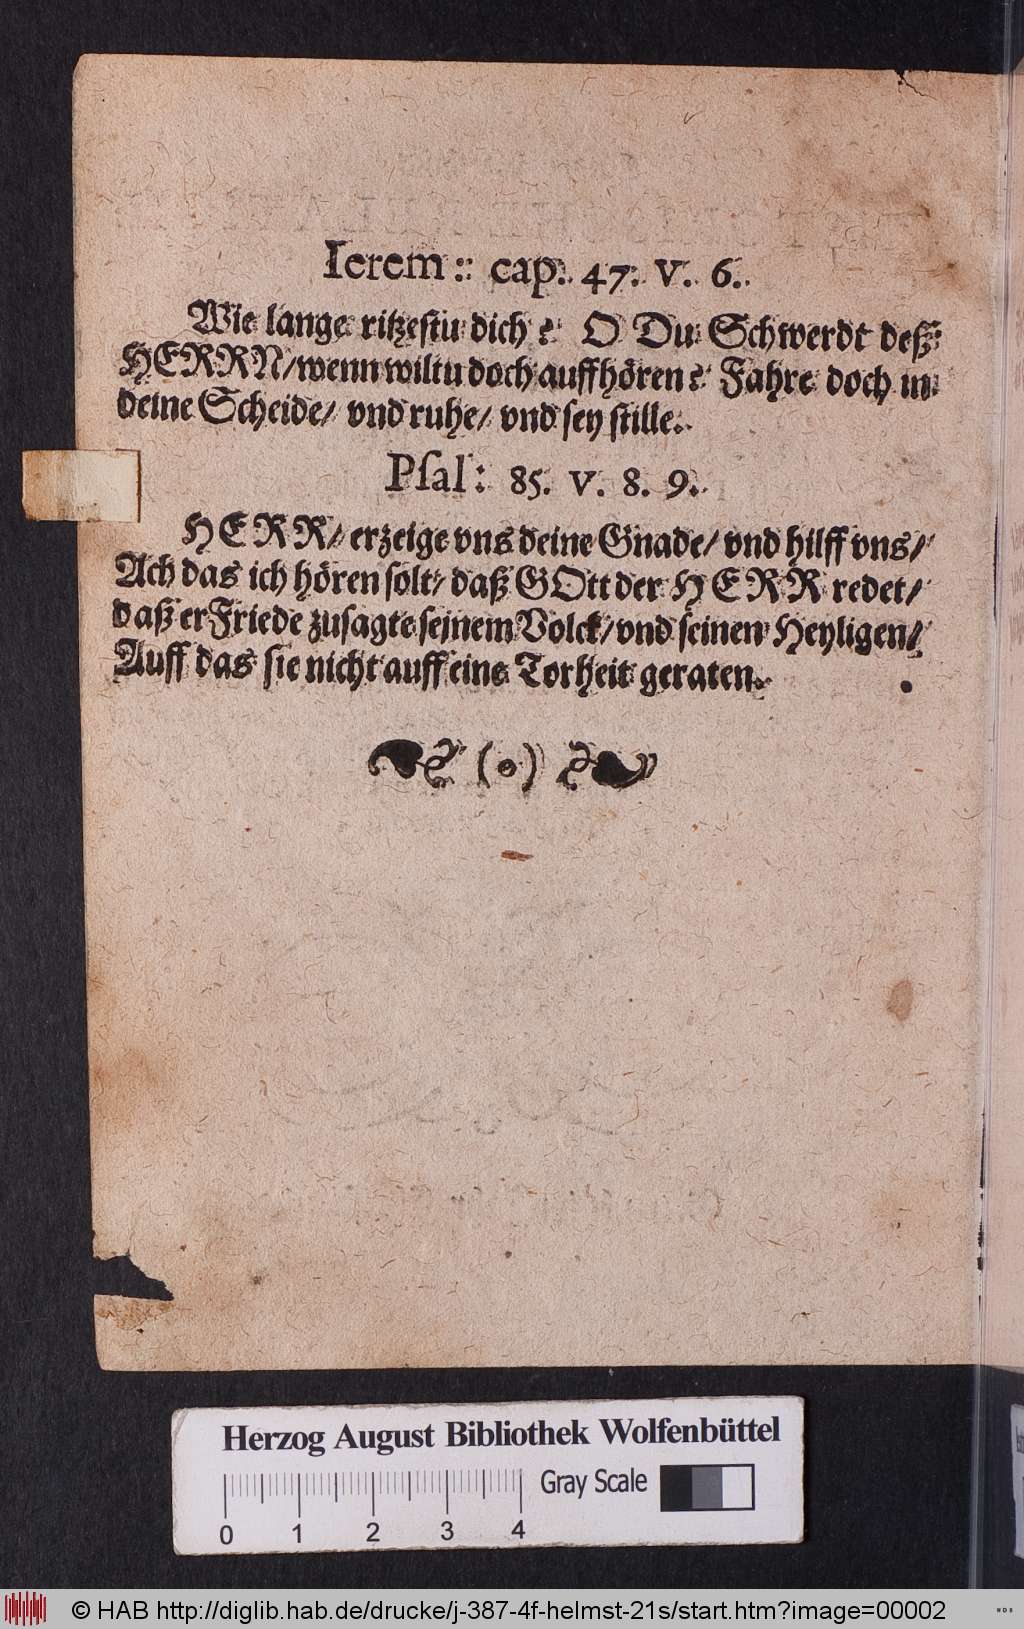 Ierem: cap. 47. v. 6.
Wie lange ritzestu dich? O Du Schwerdt deß
HERRN/ wenn wiltu doch auffhören? Fahre doch in
deine Scheide/ vnd ruhe/ vnd sey stille.
Psal: 85. v. 8. 9.
HERR/ erzeige vns deine Gnade/ vnd hilff vns/
Ach das ich hören solt/ daß GOtt der HERR redet/
daß er Friede zusagte seinem Volck/ vnd seinen Heyligen/
Auff das sie nicht auff eine Torheit geraten.
Herzog August Bibliothek Wolfenbüttel
Gray Scale
0 1 2 3 4
© HAB http://diglib.hab.de/drucke/j-387-4f-helmst-21s/start.htm?image=00002